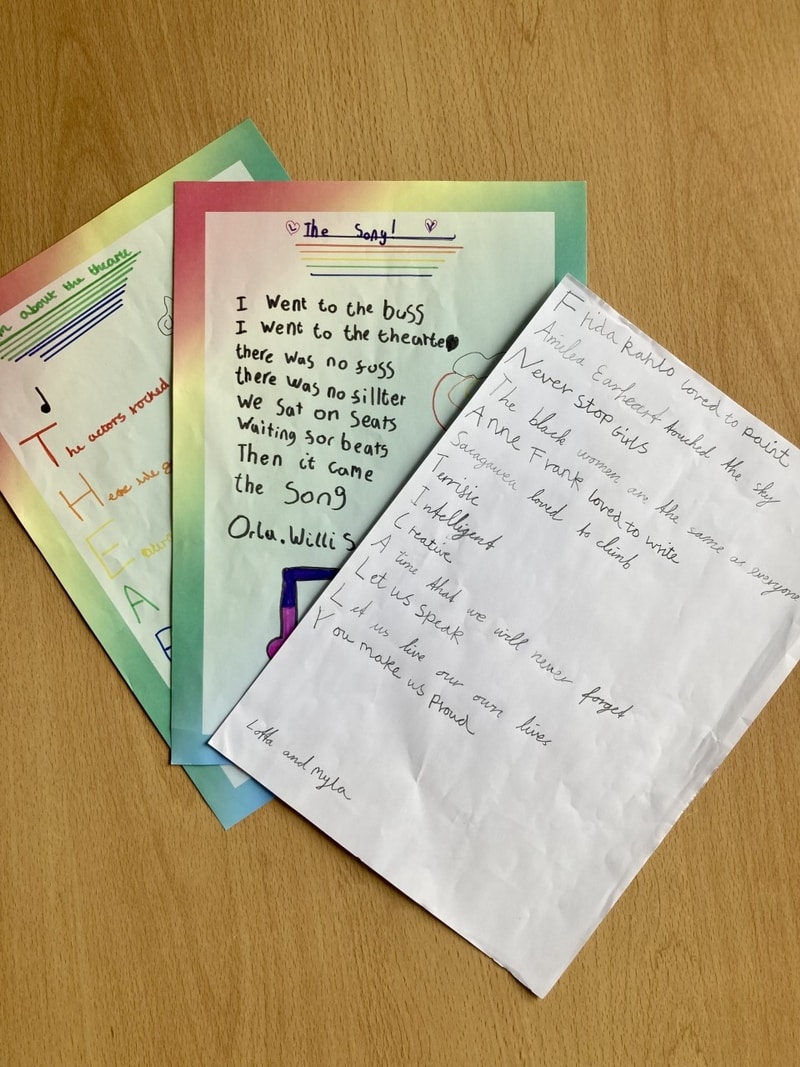 about the thearte
The actors rocked
Here we g
E
A
The Song!
I Went to the buss
I went to the thearte
there was no fuss
there was no fillter
we sat on seats
waiting for beats
Then it came
the Song
Orla. Willis
Frida Kahlo loved to paint
Amelea Earheart touched the sky
Never stop Girls
The black women are the same as everyone
Anne Frank loved to write
Sacagawea loved to climb
Terrific
Intelligent
Creative
A time that we will never forget
Let us speak
Let us live our own lives
You make us Proud
Lotta and Myla